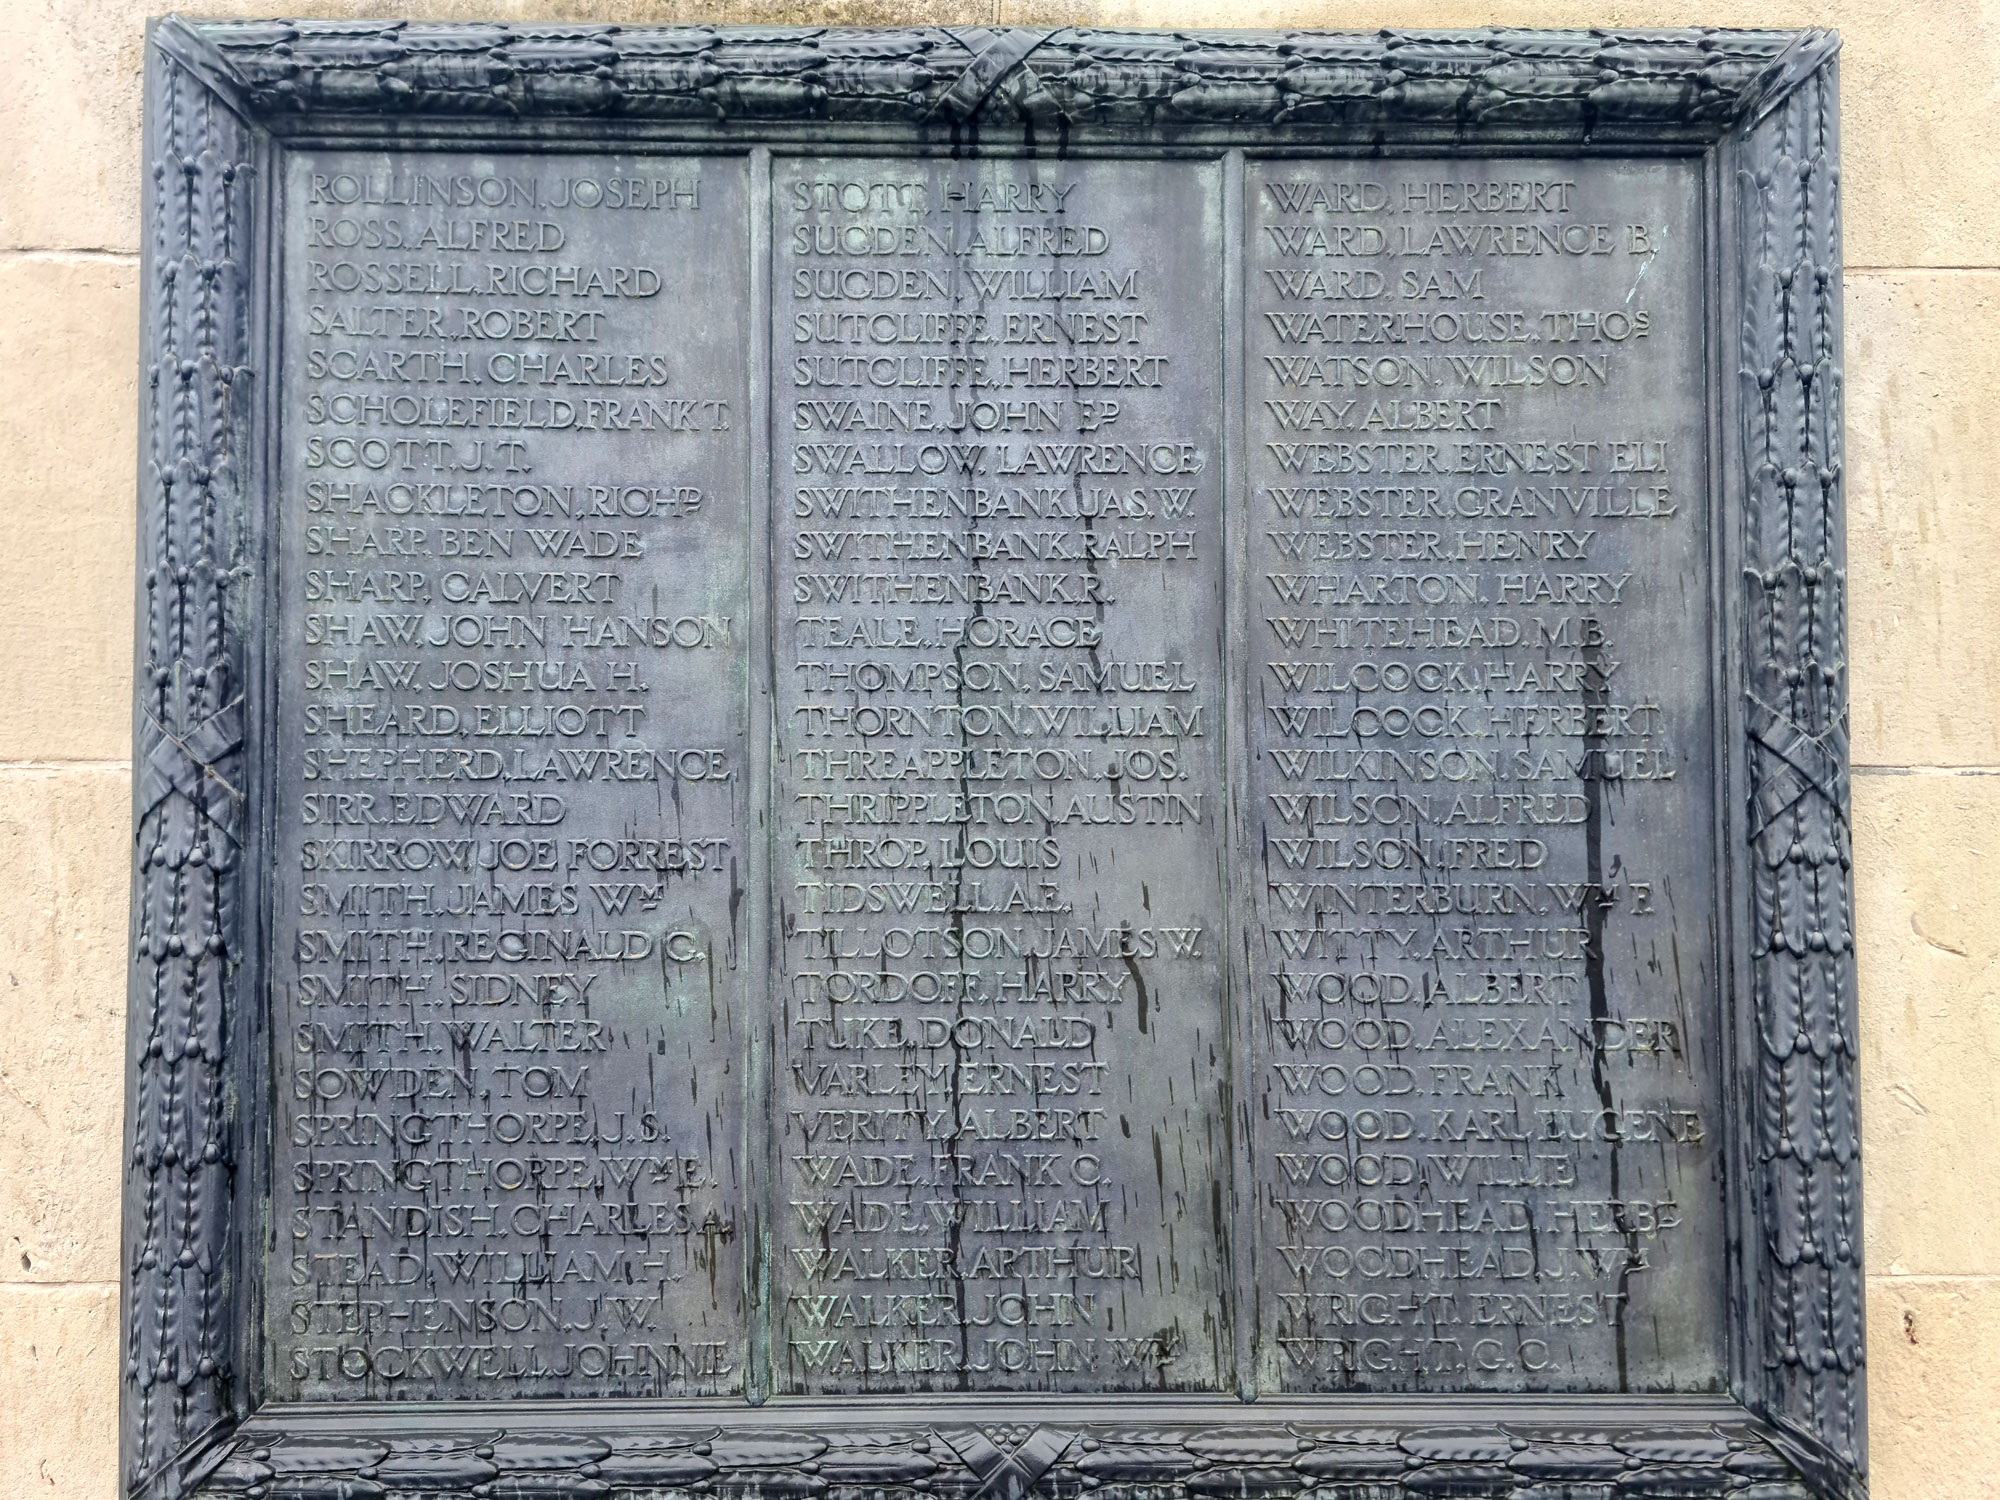 ROLLINSON, JOSEPH
ROSS, ALFRED
ROSSELL, RICHARD
SALTER, ROBERT
SCARTH, CHARLES
SCHOLEFIELD, FRANK T.
SCOTT, J. T.
SHACKLETON, RICHD
SHARP, BEN WADE
SHARP, CALVERT
SHAW, JOHN HANSON
SHAW, JOSHUA H.
SHEARD, ELLIOTT
SHEPHERD, LAWRENCE
SIRR, EDWARD
SKIRROW, JOE FORREST
SMITH, JAMES WM
SMITH, REGINALD G.
SMITH, SIDNEY
SMITH, WALTER
SOWDEN, TOM
SPRINGTHORPE, J. S.
SPRINGTHORPE, WM E.
STANDISH, CHARLES A.
STEAD, WILLIAM H.
STEPHENSON, J. W.
STOCKWELL, JOHNNIE
STOTT, HARRY
SUGDEN, ALFRED
SUGDEN, WILLIAM
SUTCLIFFE, ERNEST
SUTCLIFFE, HERBERT
SWAINE, JOHN ED
SWALLOW, LAWRENCE
SWITHENBANK, JAS. W.
SWITHENBANK, RALPH
SWITHENBANK, R.
TEALE, HORACE
THOMPSON, SAMUEL
THORNTON, WILLIAM
THREAPPLETON, JOS.
THRIPPLETON, AUSTIN
THROP, LOUIS
TIDSWELL, A. E.
TILLOTSON, JAMES W.
TORDOFF, HARRY
TUKE, DONALD
VARLEY, ERNEST
VERITY, ALBERT
WADE, FRANK C.
WADE, WILLIAM
WALKER, ARTHUR
WALKER, JOHN
WALKER, JOHN WM
WARD, HERBERT
WARD, LAWRENCE B.
WARD, SAM
WATERHOUSE, THOS
WATSON, WILSON
WAY, ALBERT
WEBSTER, ERNEST ELI
WEBSTER, GRANVILLE
WEBSTER, HENRY
WHARTON, HARRY
WHITEHEAD, M. B.
WILCOCK, HARRY
WILCOCK, HERBERT
WILKINSON, SAMUEL
WILSON, ALFRED
WILSON, FRED
WINTERBURN, WM F.
WITTY, ARTHUR
WOOD, ALBERT
WOOD, ALEXANDER
WOOD, FRANK
WOOD, KARL EUGENE
WOOD, WILLIE
WOODHEAD, HERBT
WOODHEAD, J. WM
WRIGHT, ERNEST
WRIGHT, G. C.